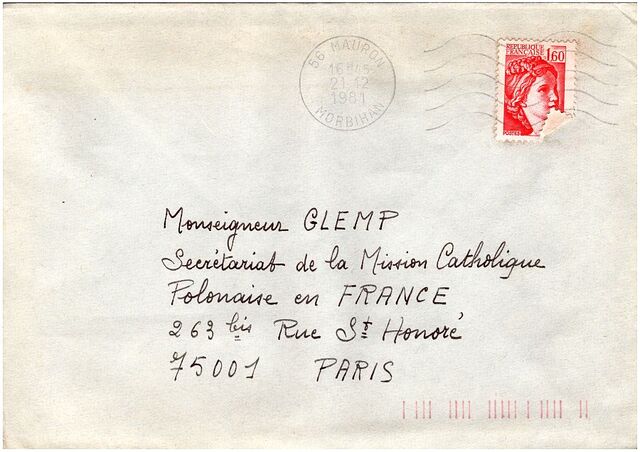 56 MAURON
16H
21-12
1981
MORBIHAN
REPUBLIQUE
FRANCAISE
1,60
POSTES
Monseigneur GLEMP
Secrétariat de la Mission Catholique
Polonaise en FRANCE
263 bis Rue St Honoré
75001 PARIS